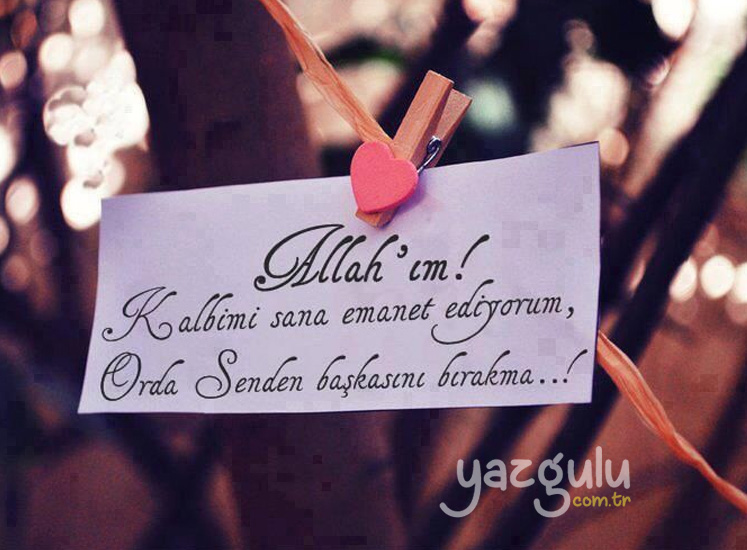 Allah'ım!
Kalbimi sana emanet ediyorum,
Orda Senden başkasını bırakma...!
yazgulu
com.tr